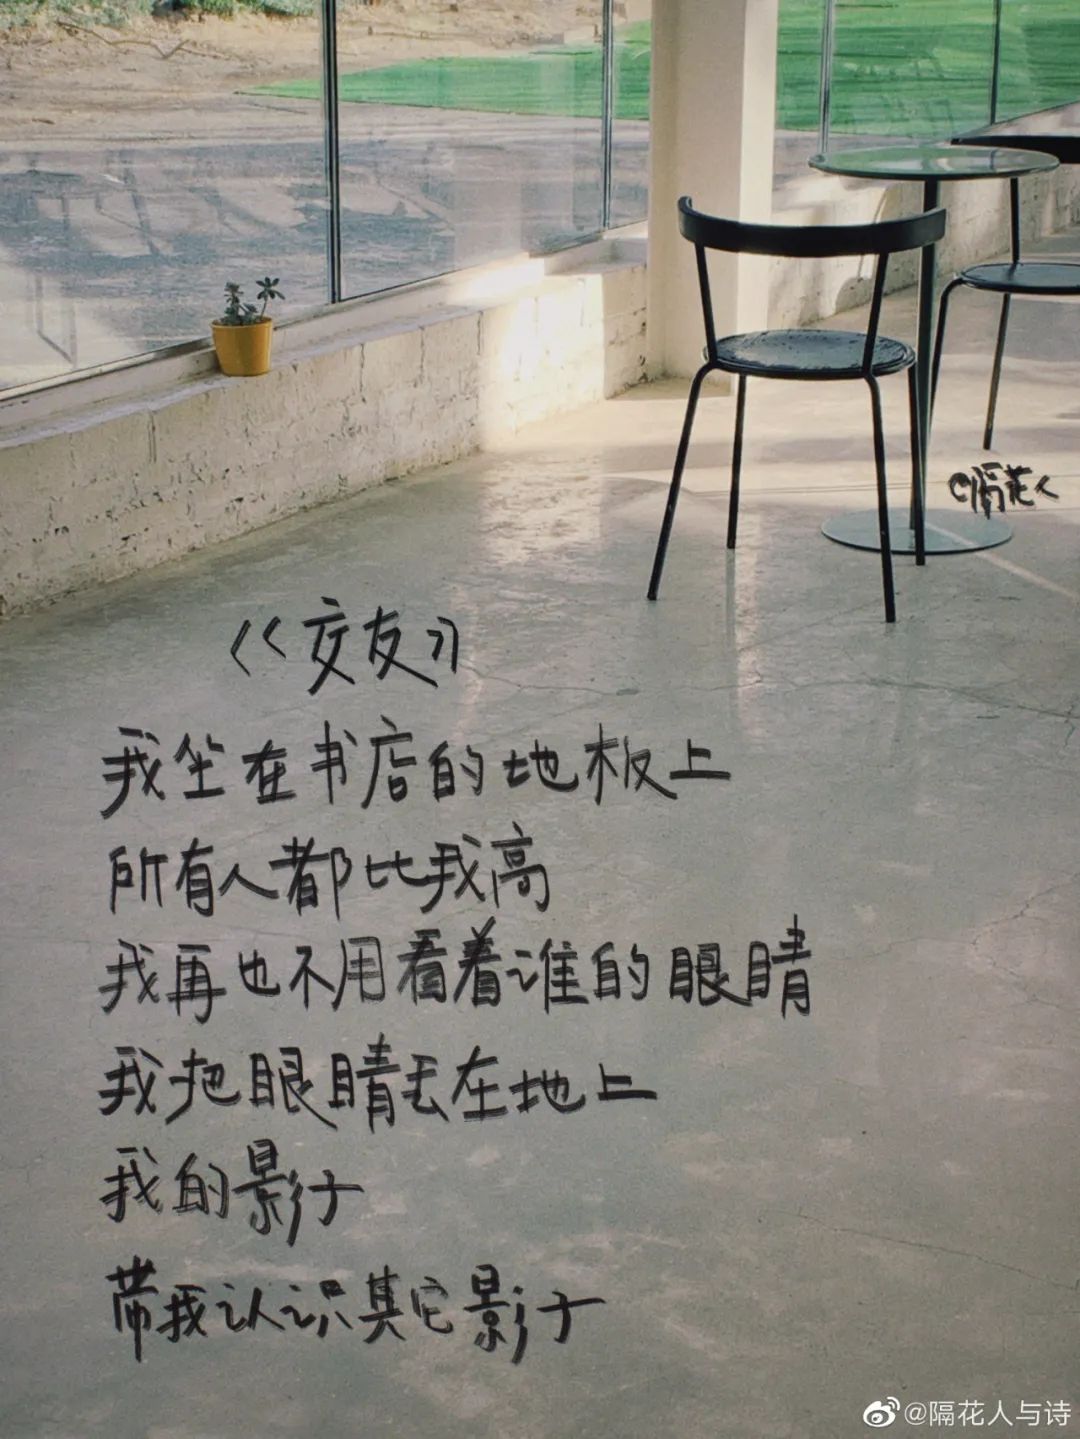 @隔花人
《交友》
我坐在书店的地板上
所有人都比我高
我再也不用看着谁的眼睛
我把眼睛丢在地上
我的影子
带我认识其它影子
@隔花人与诗